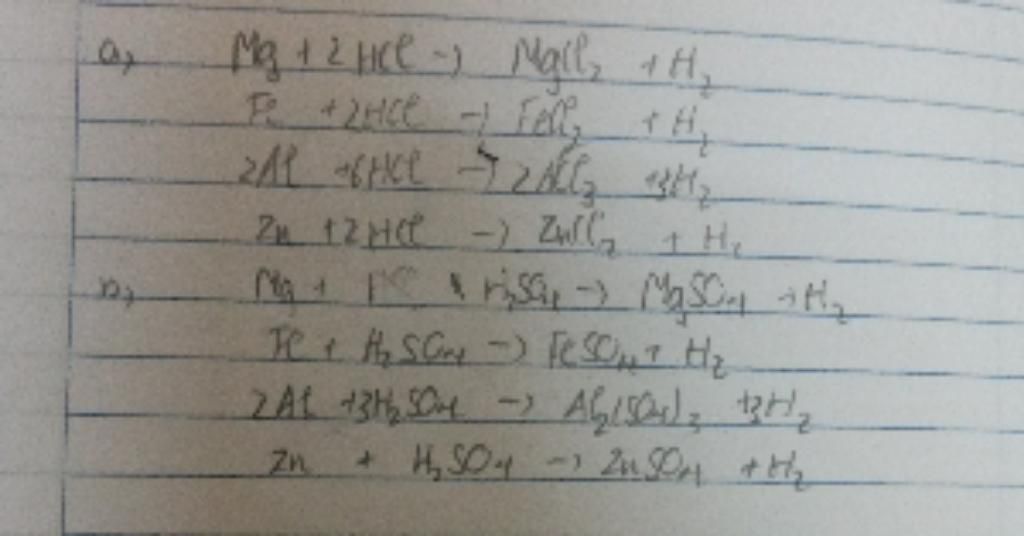 a, Mg + 2HCl -> MgCl2 + H2
Fe + 2HCl -> FeCl2 + H2
2Al + 6HCl -> 2AlCl3 + 3H2
Zn + 2HCl -> ZnCl2 + H2
b, Mg + H2SO4 -> MgSO4 + H2
Fe + H2SO4 -> FeSO4 + H2
2Al + 3H2SO4 -> Al2(SO4)3 + 3H2
Zn + H2SO4 -> ZnSO4 + H2